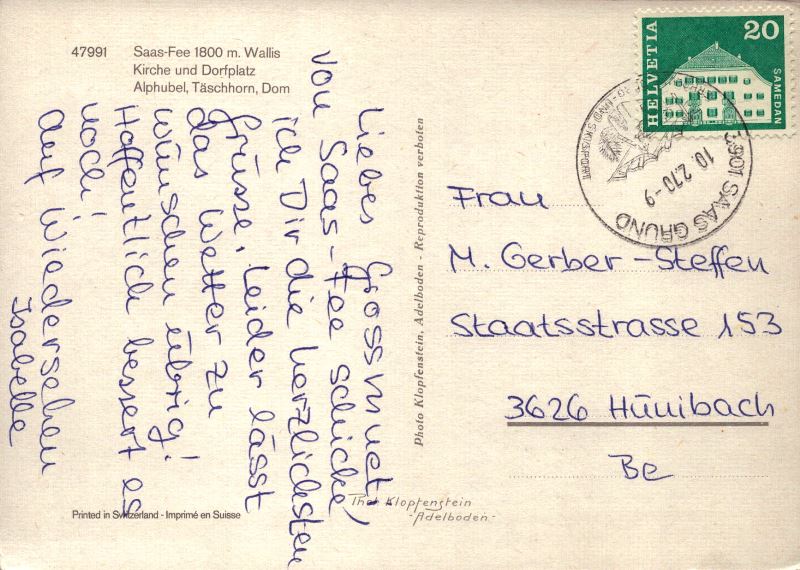 47991 Saas-Fee 1800 m. Wallis
Kirche und Dorfplatz
Alphubel, Täschhorn, Dom
Liebes Grossmuet!
Von Saas-Fee schicke
ich Dir die herzlichsten
Grüsse. Leider lässt
das Wetter zu
wünschen übrig!
Hoffentlich bessert es
noch!
Auf Wiedersehen
Isabelle
Printed in Switzerland - Imprimé en Suisse
Photo Klopfenstein, Adelboden - Reproduktion verboten
Klopfenstein
-Adelboden-
HELVETIA
20
SAMEDAN
3901 SAAS GRUND
10.2.70-9
UND SKISPORT
Frau
M. Gerber-Steffen
Staatsstrasse 153
3626 Hünibach
Be